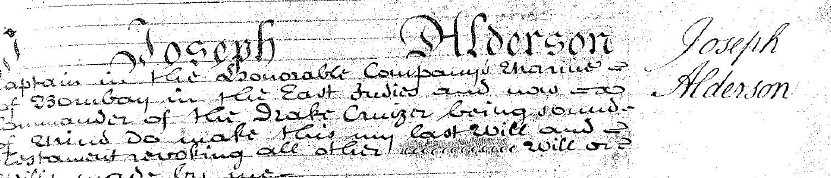 I Joseph Alderson
Captain in the Honorable Company's Marine
of Bombay in the East Indies and now
Commander of the Drake Cruizer being sound
of Mind Do make this my last Will and
Testament revoking all other Will or
Wills made by me
Joseph
Alderson